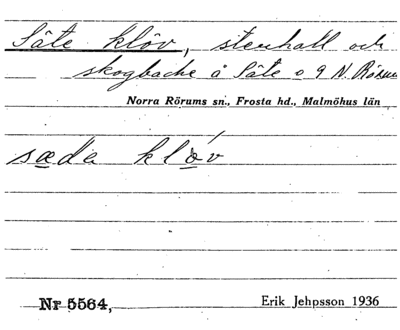 Såte klöv, stenhall och
skogbacke å Såte o 9 N. Rörum
Norra Rörums sn., Frosta hd., Malmöhus län
sæda klǫ́v
Nr 5564,
Erik Jehpsson 1936